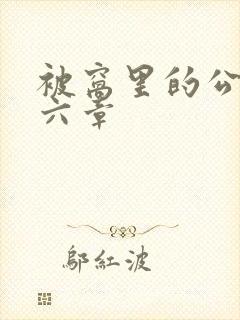 被窝里的公
六章
邬红波